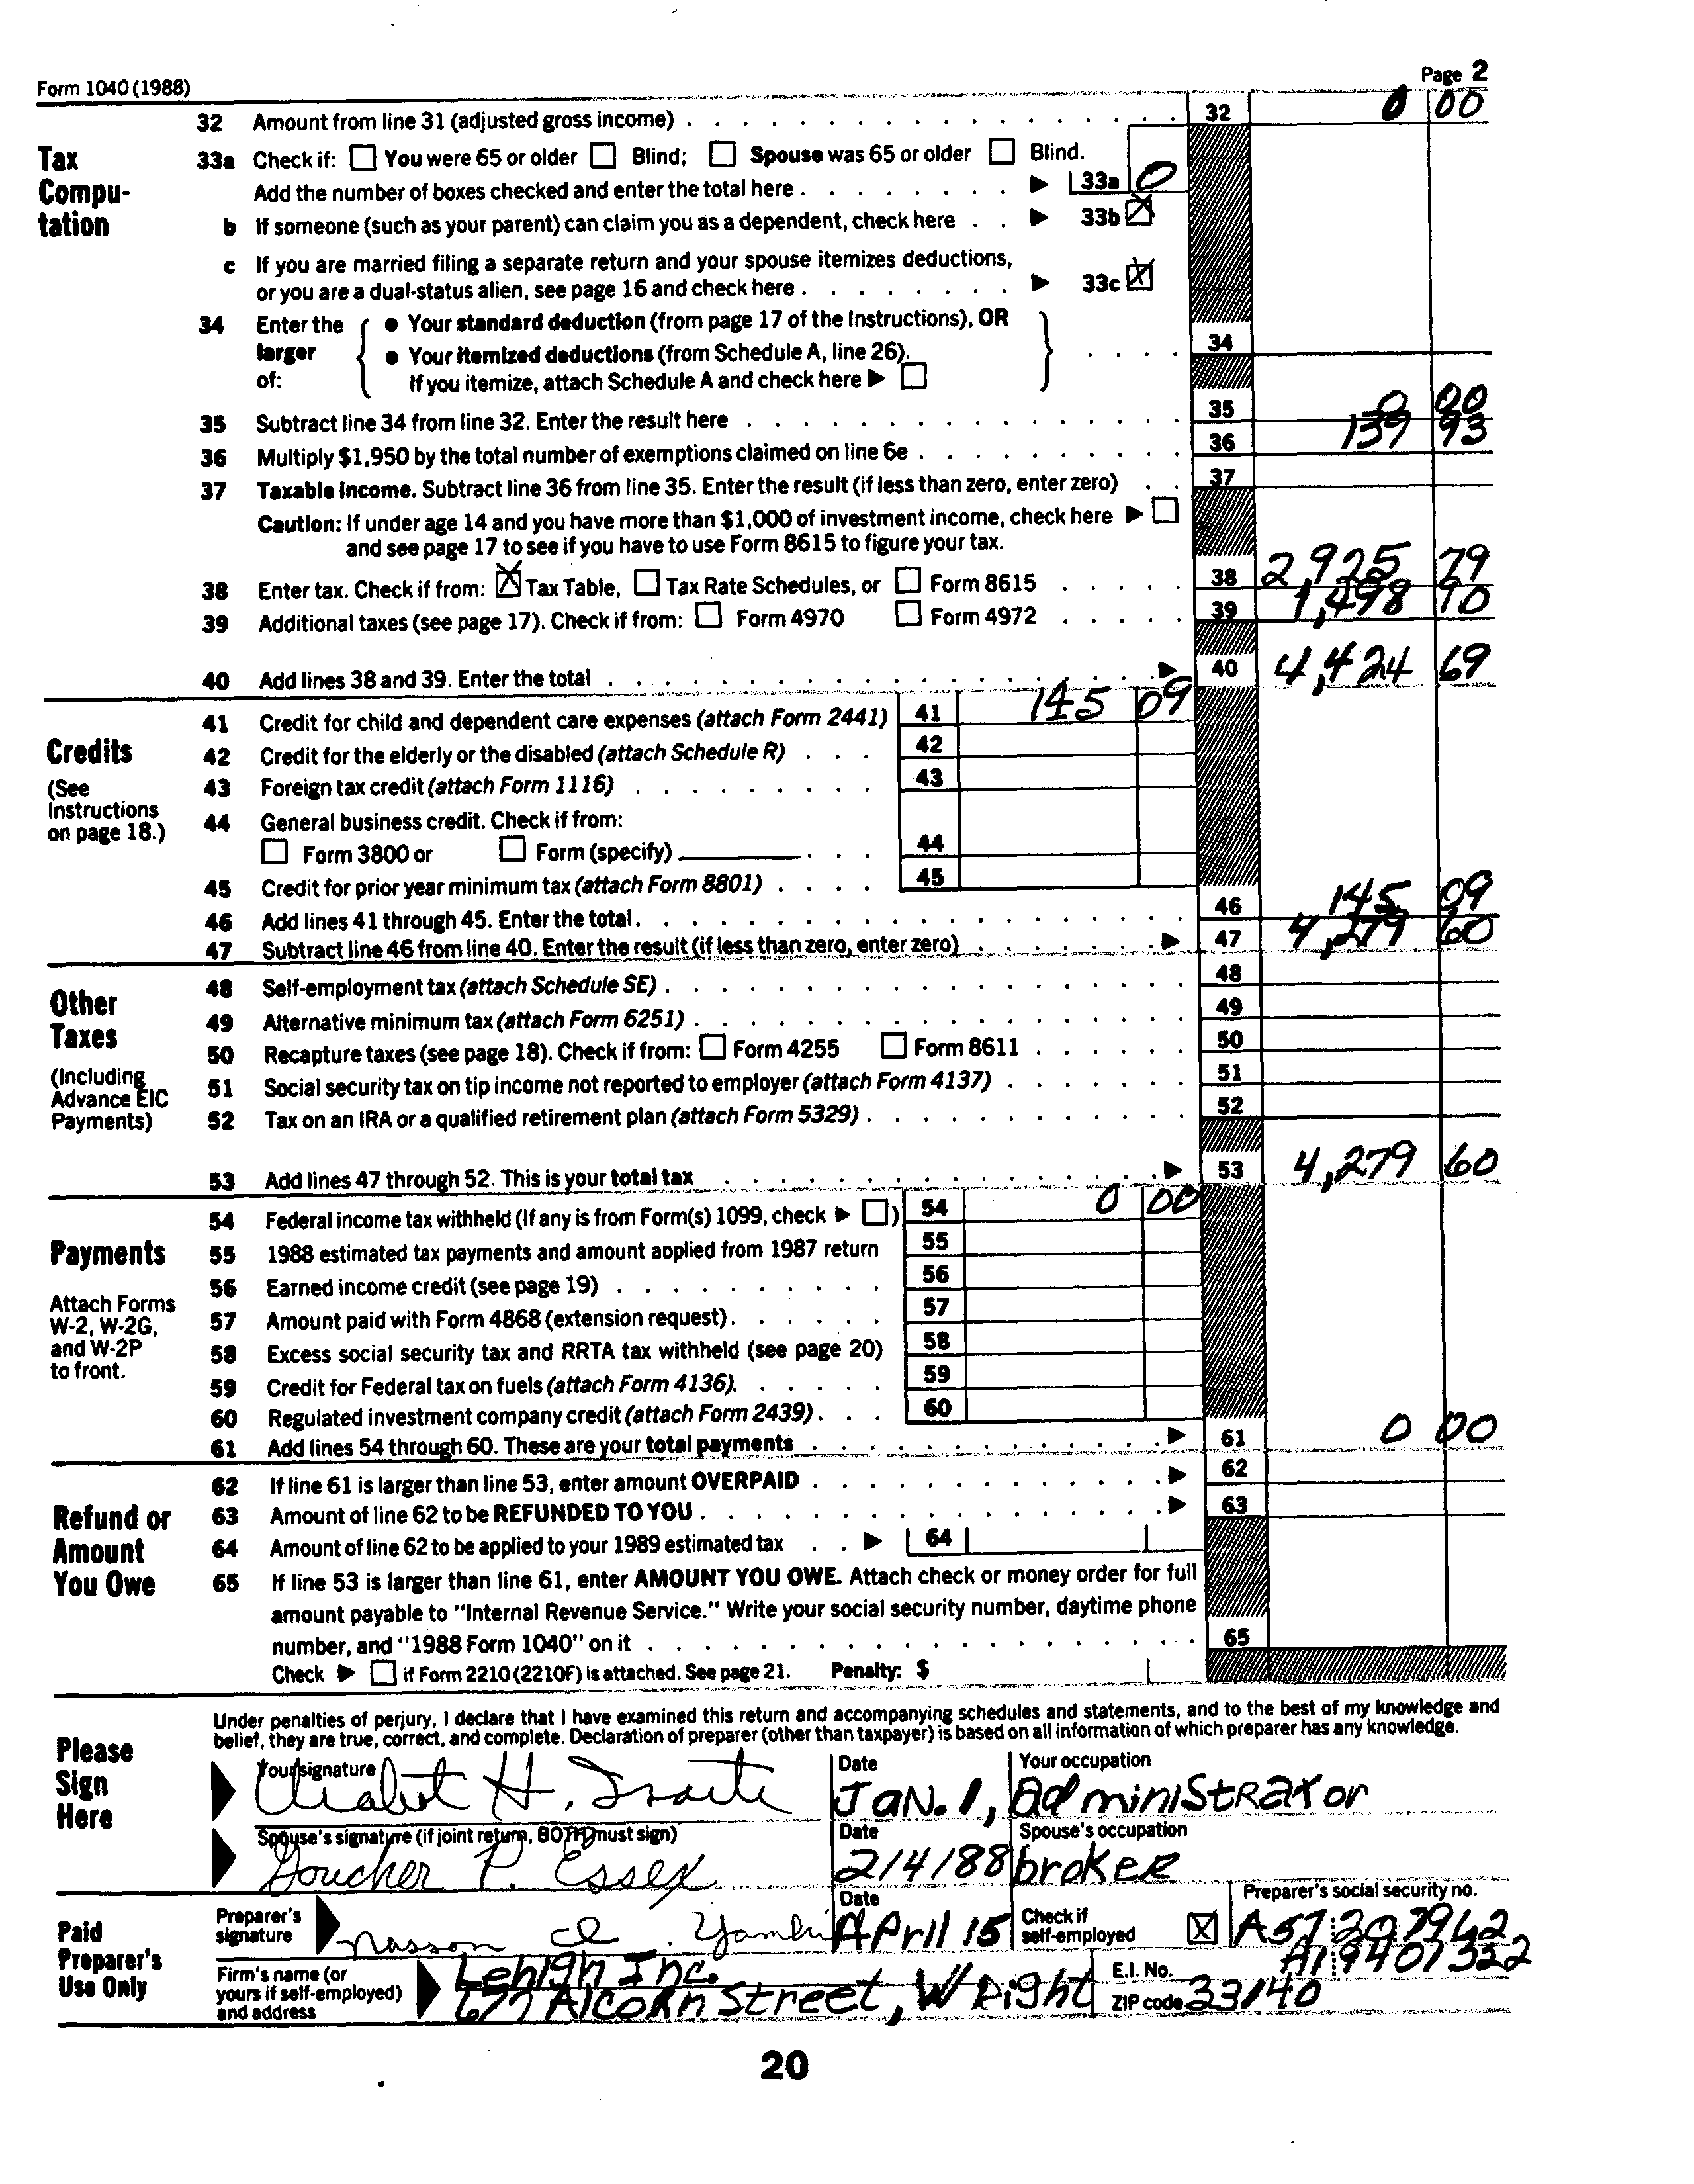 Form 1040 (1988)
Page 2
32 Amount from line 31 (adjusted gross income) . . . . 32 0 00
Tax Compu-tation
33a Check if: ☐ You were 65 or older ☐ Blind; ☐ Spouse was 65 or older ☐ Blind.
Add the number of boxes checked and enter the total here . . . . ▶ 33a 0
b If someone (such as your parent) can claim you as a dependent, check here . . ▶ 33b ☒
c If you are married filing a separate return and your spouse itemizes deductions,
or you are a dual-status alien, see page 16 and check here . . . . ▶ 33c ☒
34 Enter the larger of: { ● Your standard deduction (from page 17 of the Instructions), OR
● Your itemized deductions (from Schedule A, line 26). } . . . . 34
If you itemize, attach Schedule A and check here ▶ ☐
35 Subtract line 34 from line 32. Enter the result here . . . . 35 0 00
36 Multiply $1,950 by the total number of exemptions claimed on line 6e . . . . 36 139 93
37 Taxable income. Subtract line 36 from line 35. Enter the result (if less than zero, enter zero) . . 37
Caution: If under age 14 and you have more than $1,000 of investment income, check here ▶ ☐
and see page 17 to see if you have to use Form 8615 to figure your tax.
38 Enter tax. Check if from: ☒ Tax Table, ☐ Tax Rate Schedules, or ☐ Form 8615 . . . . 38 2,925 79
39 Additional taxes (see page 17). Check if from: ☐ Form 4970 ☐ Form 4972 . . . . 39 1,498 90
40 Add lines 38 and 39. Enter the total . . . . ▶ 40 4,424 69
Credits
(See Instructions on page 18.)
41 Credit for child and dependent care expenses (attach Form 2441) 41 145 09
42 Credit for the elderly or the disabled (attach Schedule R) . . . 42
43 Foreign tax credit (attach Form 1116) . . . . 43
44 General business credit. Check if from:
☐ Form 3800 or ☐ Form (specify) . . . 44
45 Credit for prior year minimum tax (attach Form 8801) . . . . 45
46 Add lines 41 through 45. Enter the total . . . . 46 145 09
47 Subtract line 46 from line 40. Enter the result (if less than zero, enter zero) . . . . ▶ 47 4,279 60
Other Taxes
(Including Advance EIC Payments)
48 Self-employment tax (attach Schedule SE) . . . . 48
49 Alternative minimum tax (attach Form 6251) . . . . 49
50 Recapture taxes (see page 18). Check if from: ☐ Form 4255 ☐ Form 8611 . . . . 50
51 Social security tax on tip income not reported to employer (attach Form 4137) . . . . 51
52 Tax on an IRA or a qualified retirement plan (attach Form 5329) . . . . 52
53 Add lines 47 through 52. This is your total tax . . . . ▶ 53 4,279 60
Payments
Attach Forms W-2, W-2G, and W-2P to front.
54 Federal income tax withheld (If any is from Form(s) 1099, check ▶ ☐) 54 0 00
55 1988 estimated tax payments and amount applied from 1987 return 55
56 Earned income credit (see page 19) . . . . 56
57 Amount paid with Form 4868 (extension request) . . . . 57
58 Excess social security tax and RRTA tax withheld (see page 20) 58
59 Credit for Federal tax on fuels (attach Form 4136). . . . . 59
60 Regulated investment company credit (attach Form 2439) . . . 60
61 Add lines 54 through 60. These are your total payments . . . . ▶ 61 0 00
Refund or Amount You Owe
62 If line 61 is larger than line 53, enter amount OVERPAID . . . . ▶ 62
63 Amount of line 62 to be REFUNDED TO YOU . . . . ▶ 63
64 Amount of line 62 to be applied to your 1989 estimated tax . . ▶ 64
65 If line 53 is larger than line 61, enter AMOUNT YOU OWE. Attach check or money order for full
amount payable to "Internal Revenue Service." Write your social security number, daytime phone
number, and "1988 Form 1040" on it . . . . 65
Check ▶ ☐ if Form 2210 (2210F) is attached. See page 21. Penalty: $
Please Sign Here
Under penalties of perjury, I declare that I have examined this return and accompanying schedules and statements, and to the best of my knowledge and
belief, they are true, correct, and complete. Declaration of preparer (other than taxpayer) is based on all information of which preparer has any knowledge.
Your signature H. Date JaN. 1, Your occupation administrator
Spouse's signature (if joint return, BOTH must sign) Goucher P. Essex Date 2/4/88 Spouse's occupation broker
Paid Preparer's Use Only
Preparer's signature Nasson Date April 15 Check if self-employed ☒ Preparer's social security no. A57 30 7962
Firm's name (or yours if self-employed) and address Lehigh Inc. E.I. No. A1 9401322
677 Alcorn Street, Wright ZIP code 33140
20